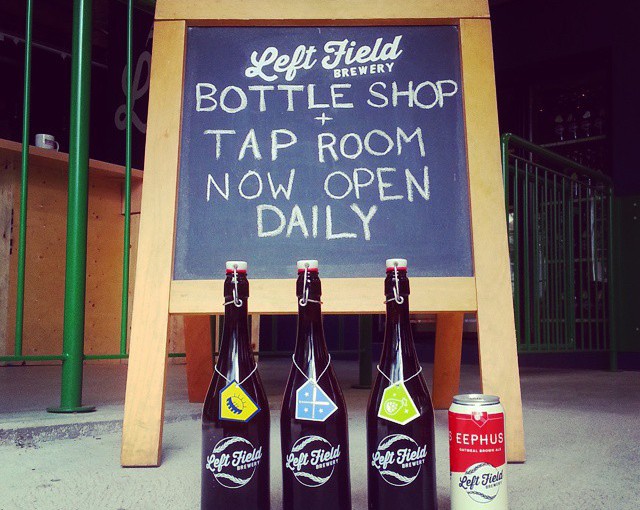 Left Field
BREWERY
BOTTLE SHOP
+
TAP ROOM
NOW OPEN
DAILY
Left Field
BREWERY
Left Field
BREWERY
Left Field
BREWERY
EEPHUS
OATMEAL BROWN ALE
Left Field
BREWERY